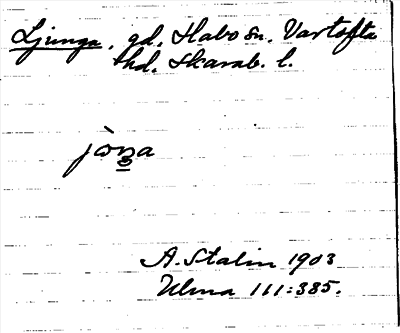 Ljunga, gd. Habo sn. Vartofta
hd. Skarab. l.
jòŋa
A. Stalin 1903
Ulma 111:385.